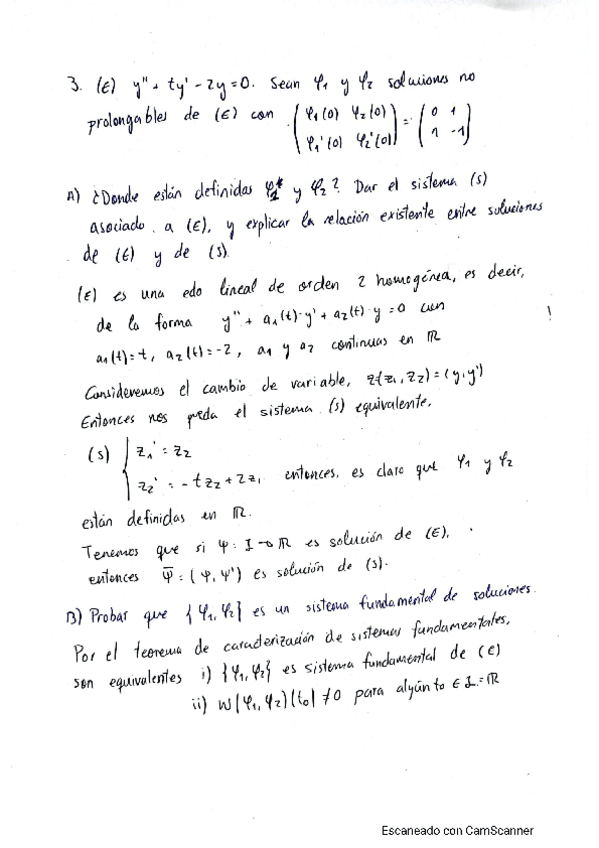 3. (E) y'' + ty' - 2y = 0. Sean φ1 y φ2 soluciones no
prolongables de (E) con (φ1(0) φ2(0) / φ1'(0) φ2'(0)) = (0 1 / 1 -1)
A) ¿Donde están definidas φ1 y φ2? Dar el sistema (S)
asociado a (E), y explicar la relación existente entre soluciones
de (E) y de (S).
(E) es una edo lineal de orden 2 homogénea, es decir,
de la forma y'' + a1(t)·y' + a2(t)·y = 0 con
a1(t) = t, a2(t) = -2, a1 y a2 continuas en ℝ
Consideremos el cambio de variable, z(z1, z2) = (y, y')
Entonces nos queda el sistema (S) equivalente.
(S) { z1' = z2
z2' = -tz2 + 2z1 entonces, es claro que φ1 y φ2
están definidas en ℝ.
Tenemos que si φ: I → ℝ es solución de (E),
entonces φ̄ = (φ, φ') es solución de (S).
B) Probar que {φ1, φ2} es un sistema fundamental de soluciones.
Por el teorema de caracterización de sistemas fundamentales,
son equivalentes i) {φ1, φ2} es sistema fundamental de (E)
ii) W(φ1, φ2)(t0) ≠ 0 para algún t0 ∈ I = ℝ
Escaneado con CamScanner